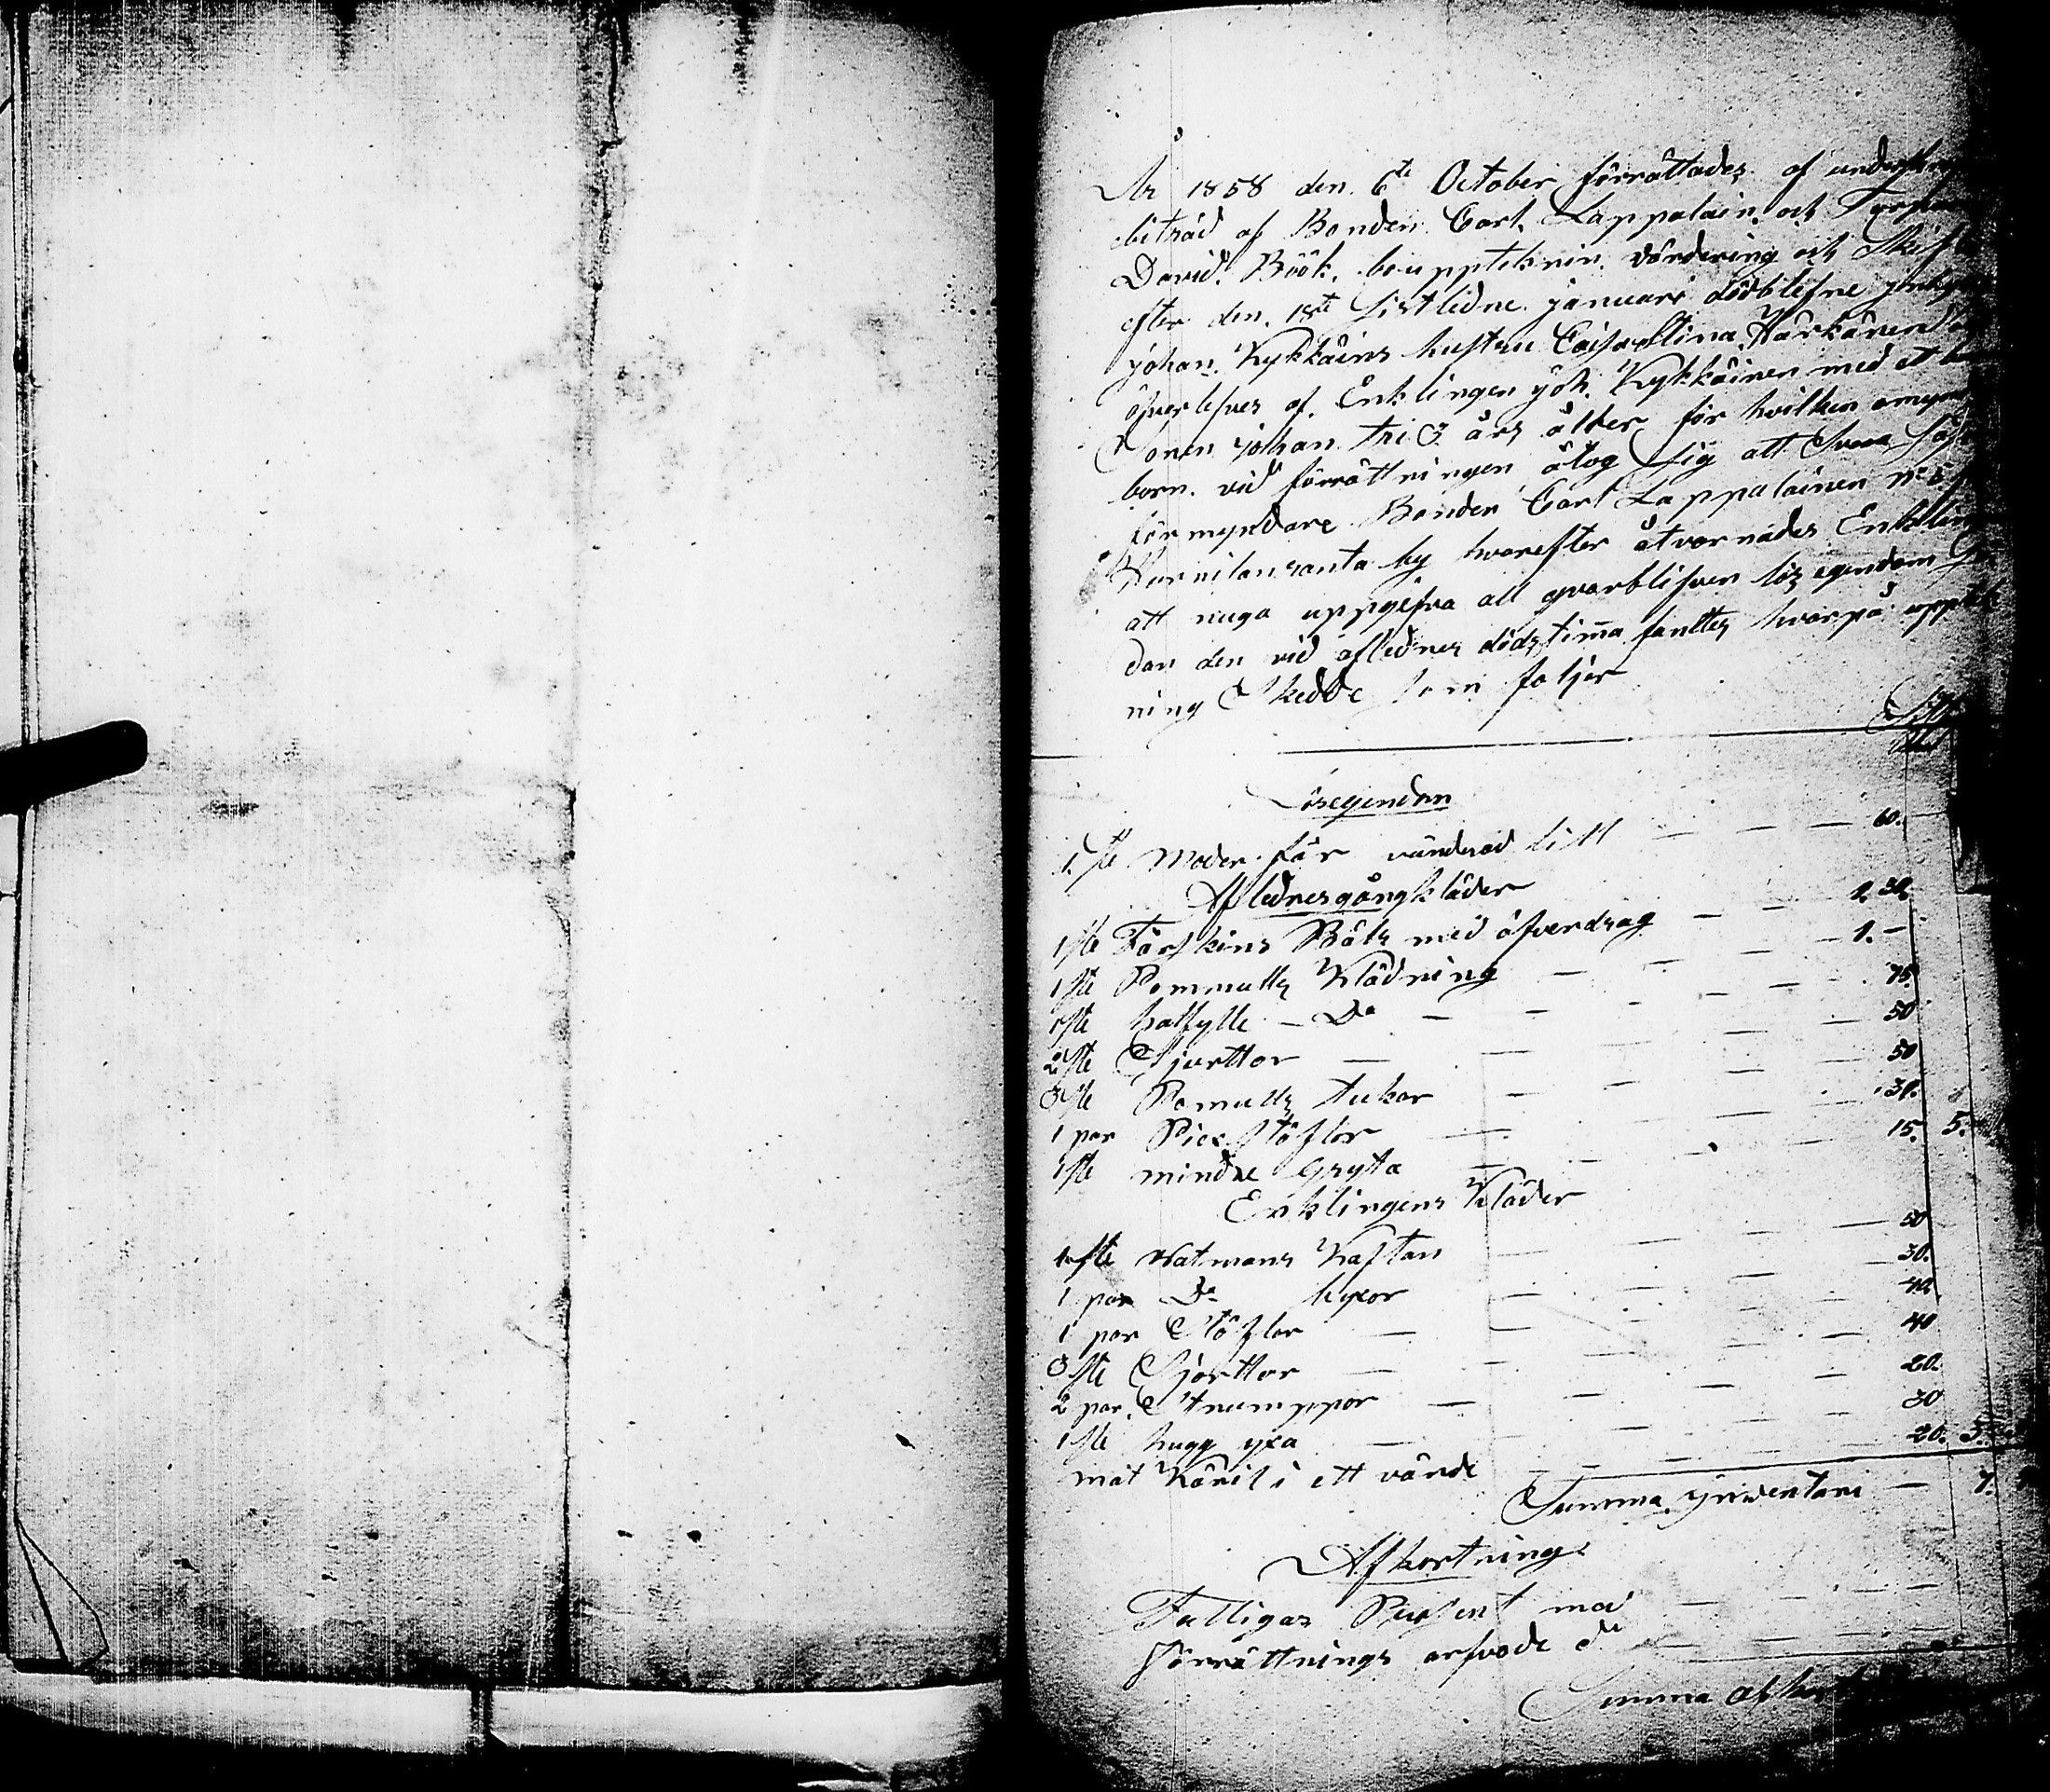 År 1858 den 6te October förrättades af
biträd af Bonden Carl Lappalain. och
David Böök. bouppteknin. värdering och
efter den. 18te Sistledne januari dödblefne
johan. Kykkäins hustru Caisastina Härkänen
öfverlefves af. Enklingen joh. Kykkäinen med et
Sonen johan tri 3 års ålder för hvilken
born. vid förrättningen åtog sig att
förmyndare Bonden Carl Lappalainen
by hvarefter åtvarnades
att noga uppgifva all qvarblifven lös egendom
dan den vid aflednes dödstima fantes hvarpå
ning Skedde som foljer
Lösegendom
1. ste Moder får värderad till — — — 60.
Aflednes gångkläder
1 ste Fårskins Päls med öfverdrag — — 2 30
1 ste Bommulls Klädning — — — 1. —
1 ste halfylle — Do — — — 75
2 ste Sjorttor — — — 50
3 ste Bomulls dukar — — — 50
1 par Piexstöflor — — — 30.
1 ste mindre Gryta — — — 15. 5.
Enklingens Kläder
1 ste Watmans Kaftan — — — 50
1 par Do byxor — — — 30.
1 par Stöflor — — — 40
3 ste Sjorttor — — — 40
2 par. Strumppor — — — 20.
1 ste hugg yxa — — — 30
mat Käril i ett värde — — — 20. 5.
Summa Inventari — 7.
Afkortning
Fattigas Prosent med — — —
Förrättnings arfvode do — — —
Summa